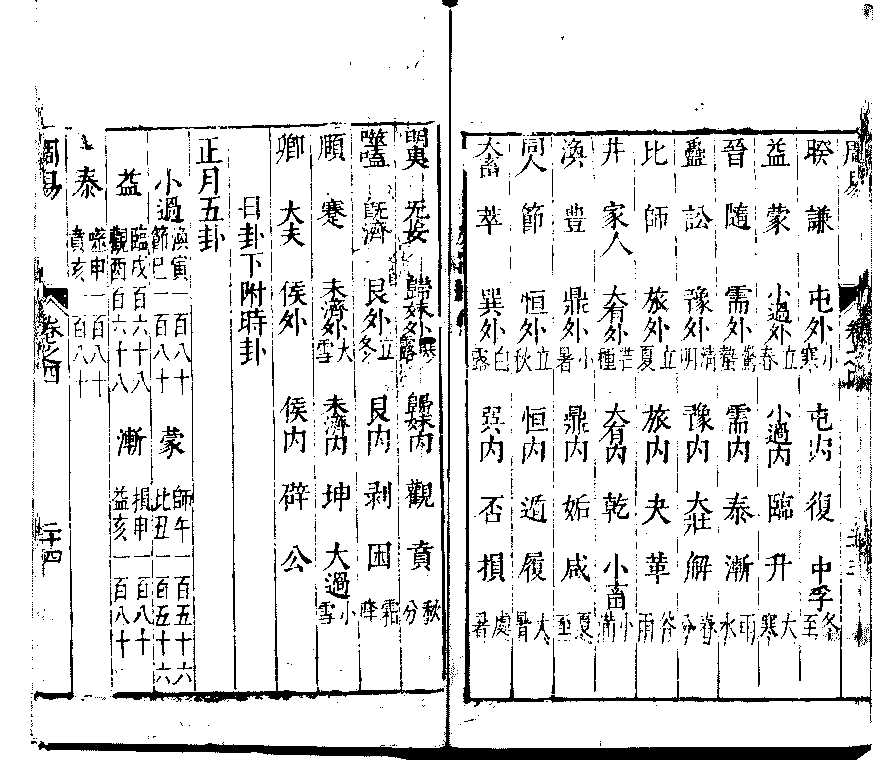 周易
睽 謙 屯外小寒 屯內 復 中孚冬至
益 蒙 小過外立春 小過內 臨 升大寒
晉 隨 需外驚蟄 需內 泰 漸雨水
蠱 訟 豫外清明 豫內 大壯 解春分
比 師 旅外立夏 旅內 夬 革谷雨
井 家人 大有外芒種 大有內 乾 小畜小滿
渙 豐 鼎外小暑 鼎內 姤 咸夏至
同人 節 恒外立秋 恒內 遁 履大暑
大畜 萃 巽外白露 巽內 否 損處暑
明夷 无妄 歸妹外寒露 歸妹內 觀 賁秋分
噬嗑 旣濟 艮外立冬 艮內 剥 困霜降
頤 蹇 未濟外大雪 未濟內 坤 大過小雪
卿 大夫 侯外 侯內 辟 公
目卦下附時卦
正月五卦
小過渙寅一百八十節巳一百八十 蒙師午一百五十六比丑一百五十六
益臨戌百六十八觀酉百六十八 漸損申一百八十益亥一百八十
泰噬申一百八十賁亥一百八十
周易 卷之四 二十四